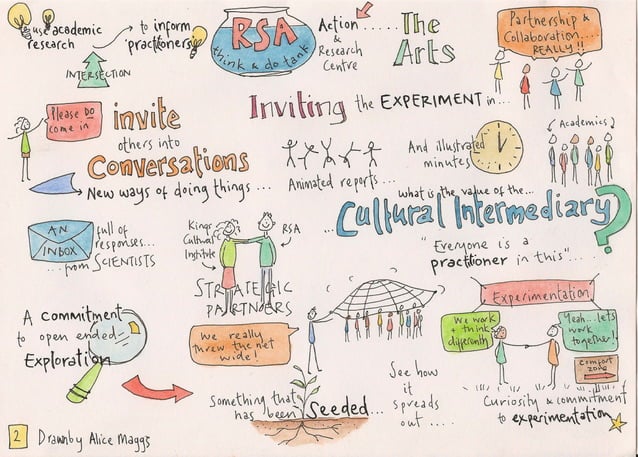 use academic
research
to inform
practitioners
INTERSECTION
RSA
think & do tank
Action.....
&
Research
Centre
The
Arts
Partnership &
Collaboration....
REALLY!!
Please DO
come in
invite
others into
Conversations
New ways of doing things...
Inviting the EXPERIMENT in...
Animated reports...
And illustrated
minutes
Academics
AN
INBOX
full of
responses...
...from SCIENTISTS
Kings
Cultural
Institute
RSA
STRATEGIC
PARTNERS
what is the value of the...
...Cultural Intermediary?
"Everyone is a
practitioner in this"...
A commitment
to open ended
Exploration
We really
threw the net
wide!
Experimentation
We work
+ think
differently
Yeah...lets
work
together!
COMFORT
ZONE
something that
has been Seeded...
See how
it
spreads
out....
Curiosity & commitment
to experimentation
2 Drawn by Alice Maggs